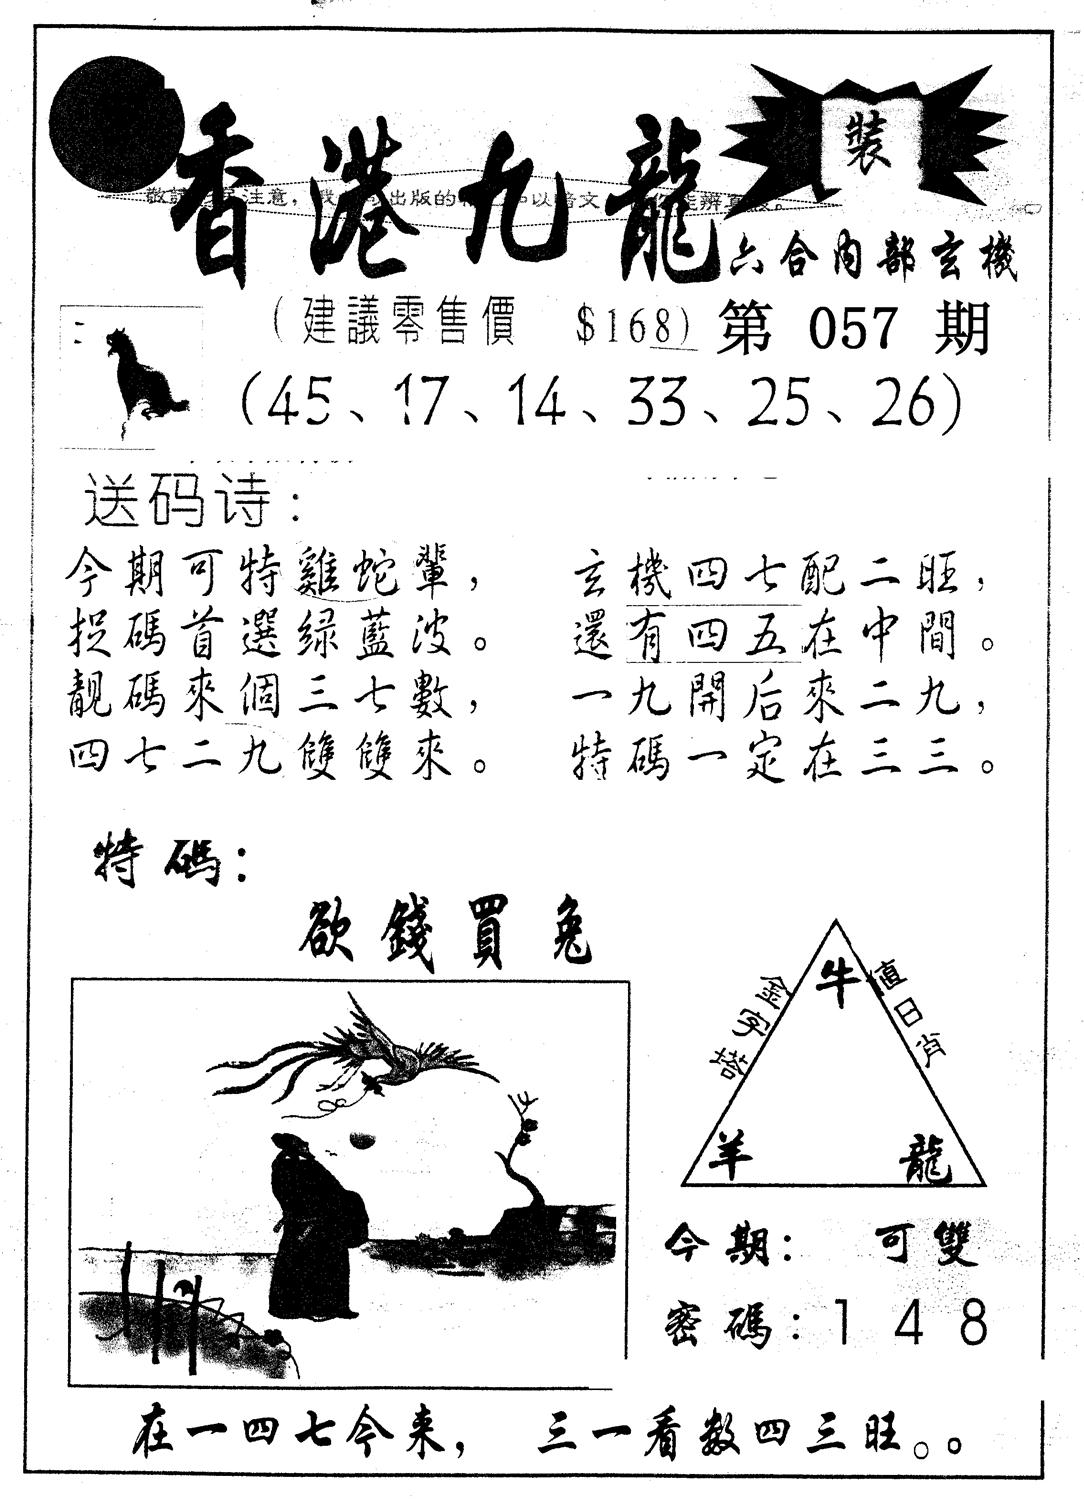 香港九龍
裝
六合內部玄機
(建議零售價 $168) 第 057 期
(45、17、14、33、25、26)
送码诗：
今期可特雞蛇輩，
捉碼首選绿藍波。
靚碼來個三七數，
四七二九雙雙來。
玄機四七配二旺，
還有四五在中間。
一九開后來二九，
特碼一定在三三。
特碼：
欲錢買兔
金字塔
牛
值日肖
羊 龍
今期： 可雙
密碼：1 4 8
在一四七今来， 三一看数四三旺。。